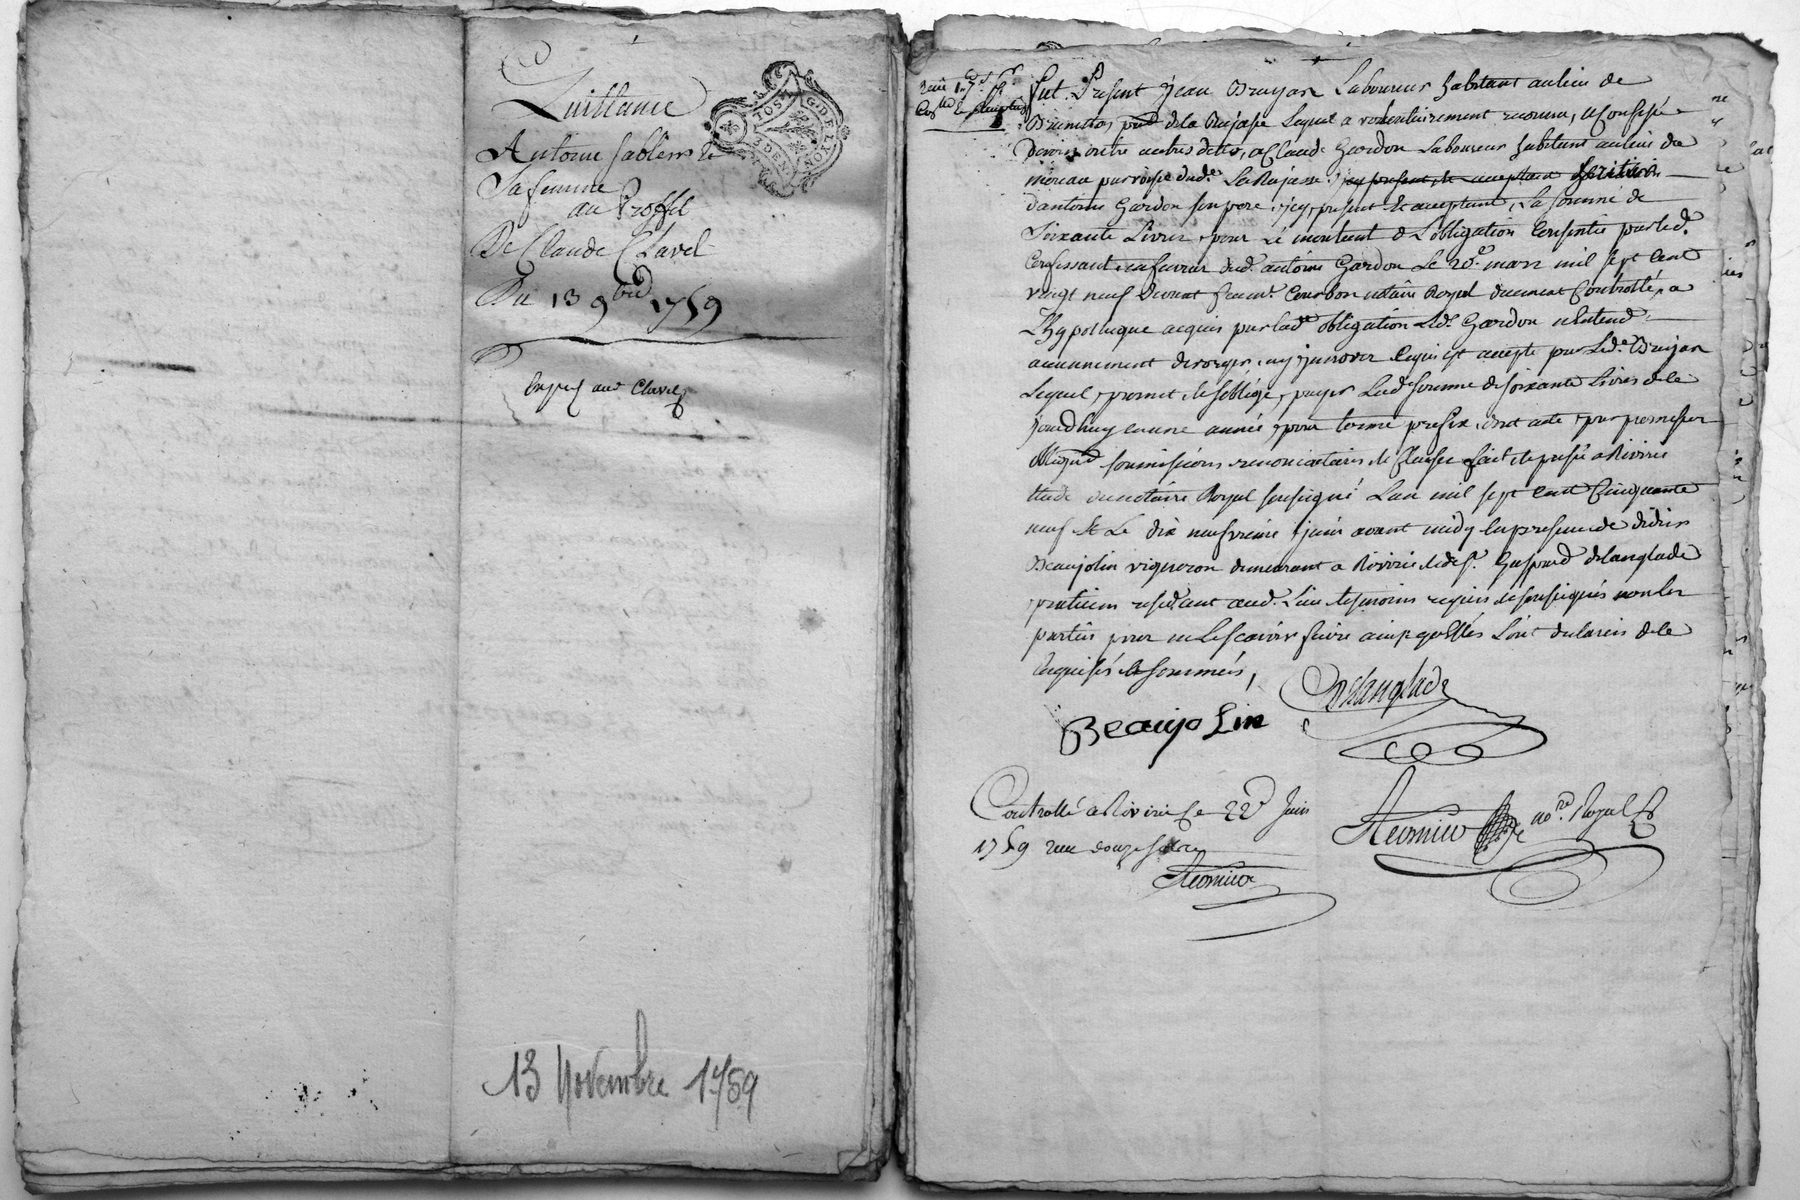 Quittance
Antoine sablière &
Sa femme
au Proffit
De Claude Clavel
Du 13 9bre 1759
Exp. aud Clavel
13 Novembre 1759
G. DE LYON
Fut Présent Jean Brujas Laboureur habitant au lieu de
de la Rajasse Lequel a volontairement reconnu, & Confessé
Devoir entre autres dettes, a Claude Gardon Laboureur habitant au lieu du
paroisse dude La Rajasse, icy présent & acceptant héritier
d'antoine Gardon son pere, icy présent & acceptant, La somme de
Soixante Livres pour Le montant de L'obligation Consentie par led.
Confessant en faveur dud. antoine Gardon Le mars mil sept Cent
vingt neuf devant Courbon notaire Royal duement Controllé, a
L'hypotheque acquis par lade obligation Led. Gardon n'entend
aucunement deroger, ny innover Ce qui est accepté par Led. Brujas
Lequel promet & s'oblige, payer Lad. somme de soixante Livres de ce
jourd'huy en une année, pour terme prefix, dont acte, par promesses
oblige soumissions renonciations & Clauses fait & passé a Riverie
Etude du notaire Royal soussigné L'an mil sept Cent Cinquante
neuf & Le dix neufvieme juin avant midy en presence de didier
Beaujolin vigneron demeurant a Riverie & de Sr. Gaspard delanglade
praticien residant aud. Lieu temoins requis & soussignés non les
parties pour ne Le scavoir faire ainsy qu'elles L'ont declaré de ce
Enquises & sommées,
Delanglade
Beaujolin
Controllé a Riverie Le 22e Juin
1759 reçu douze sols
no.re Royal